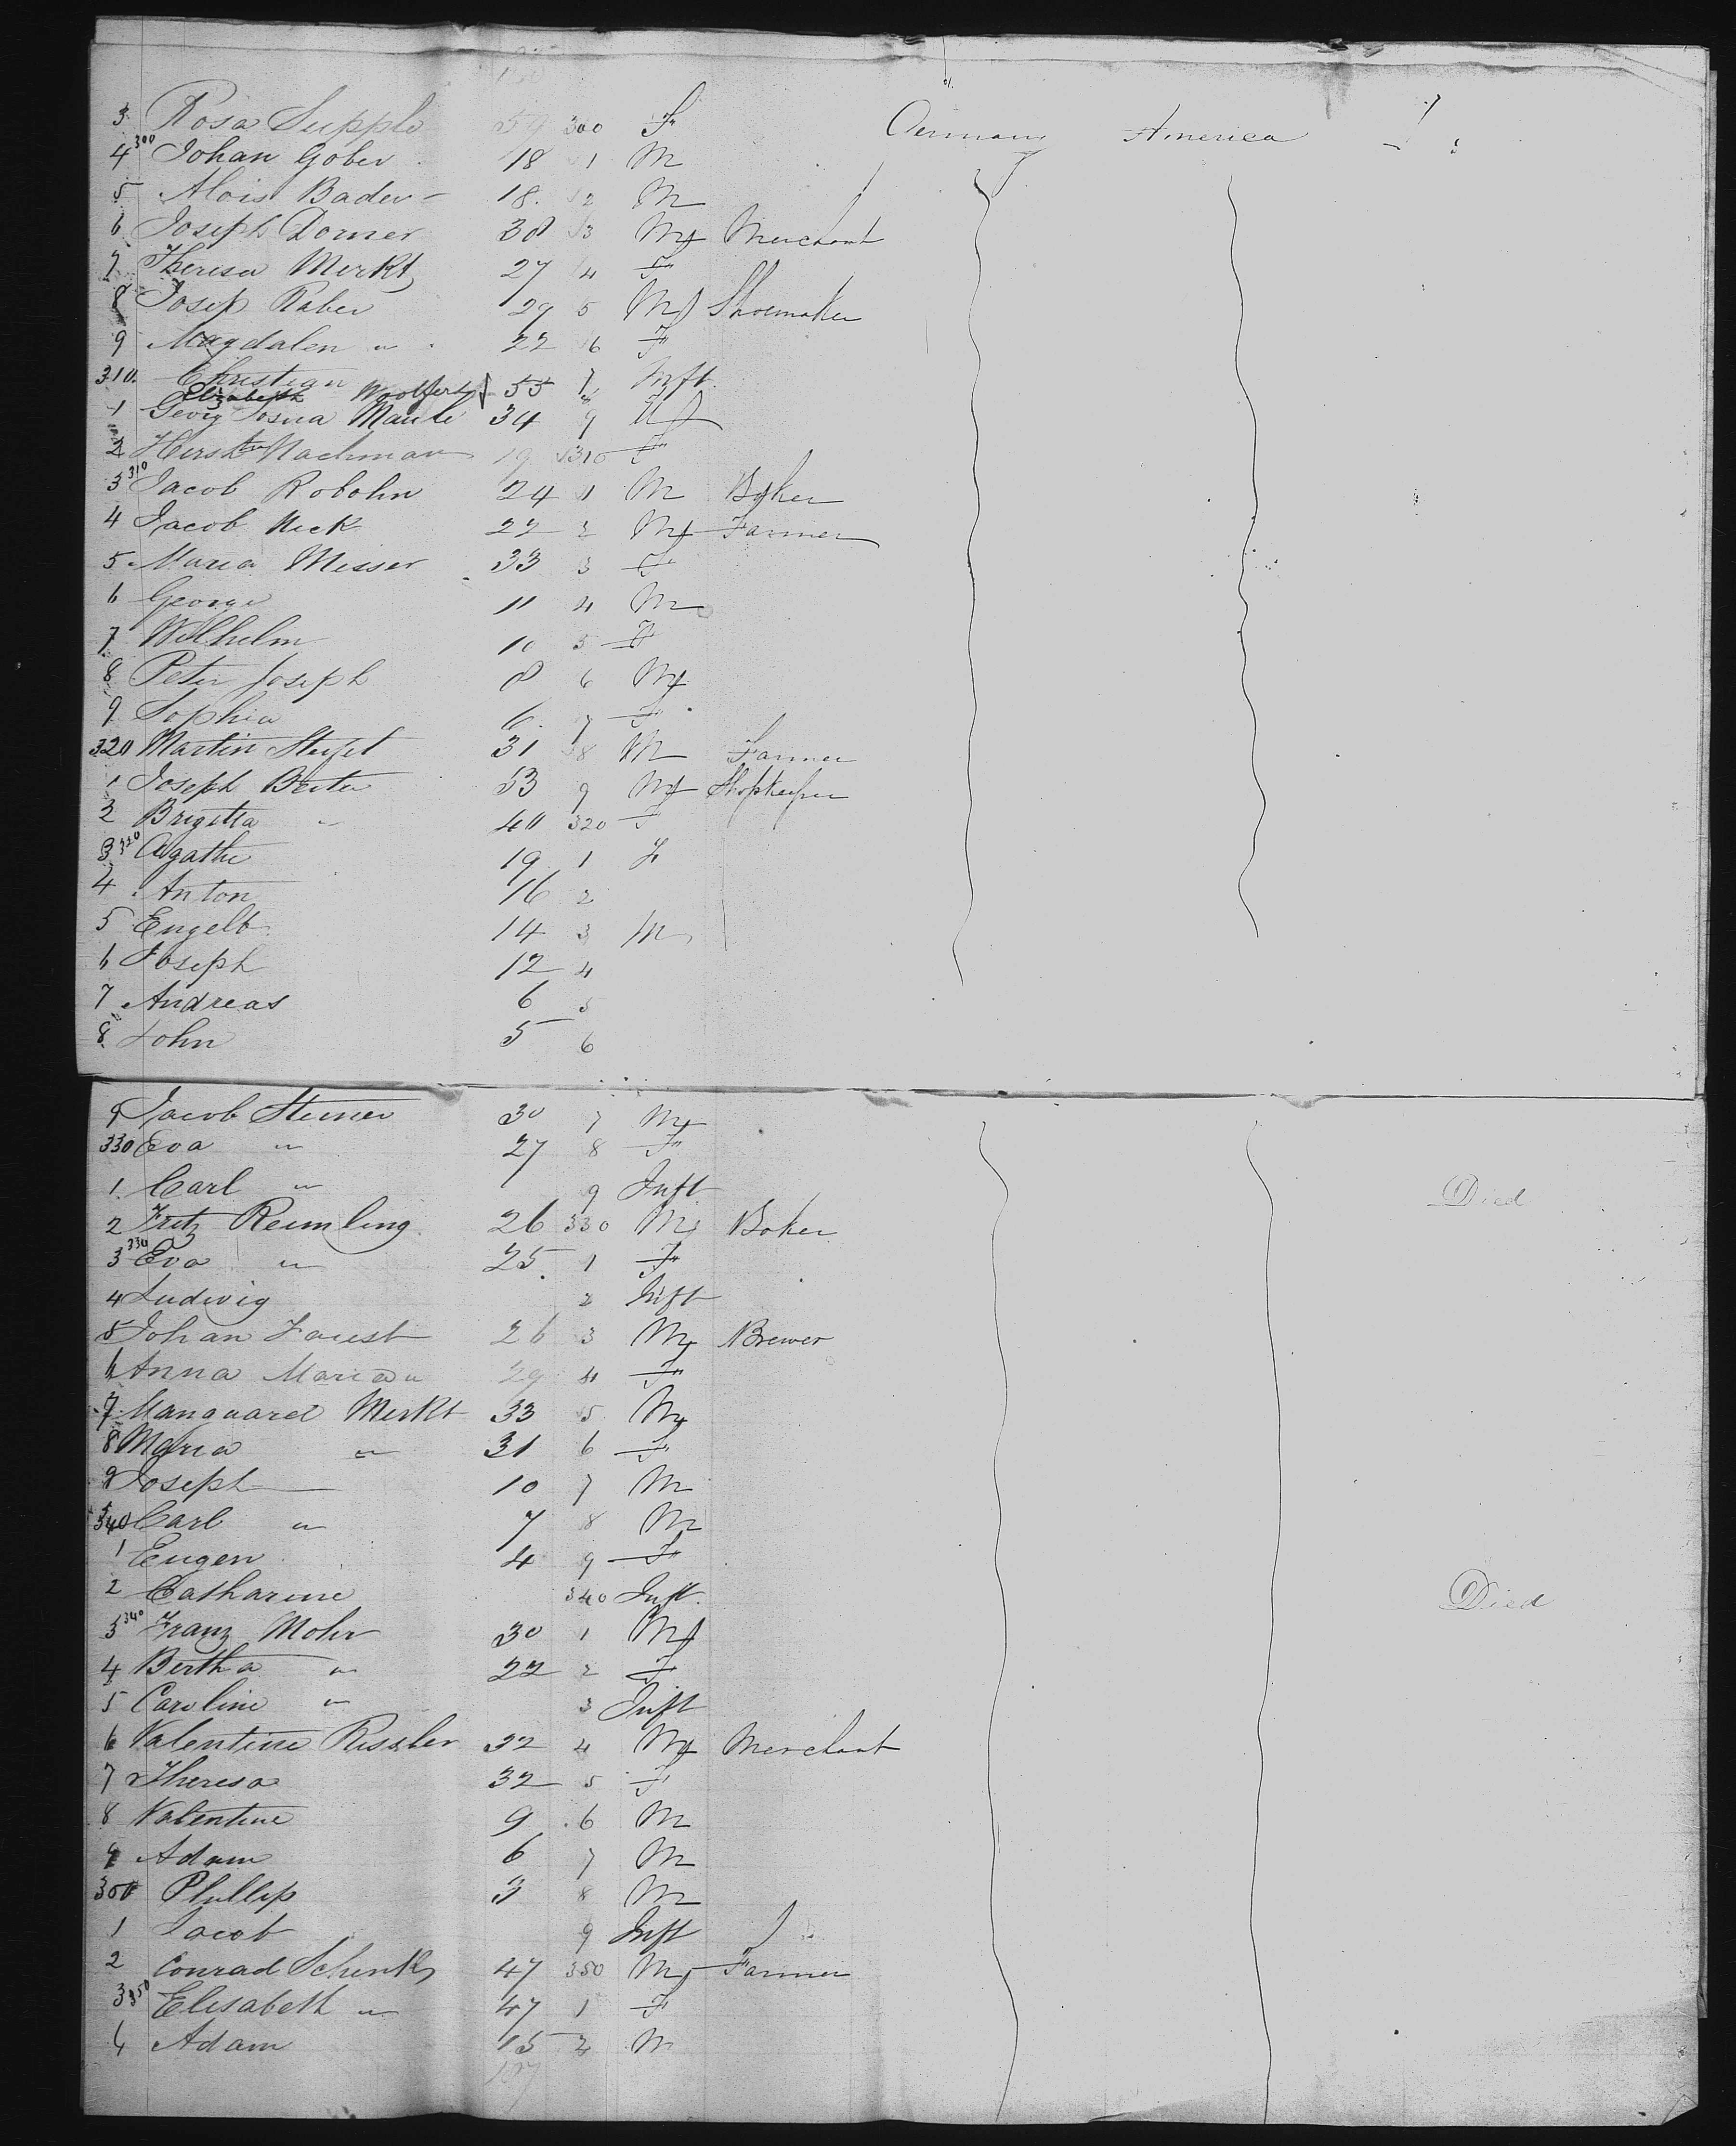 3 Rosa Supple 59 300 F Germany America
4 300 Johan Gober 18 1 M
5 Alois Bader 18 2 M
6 Joseph Dorner 30 3 M Merchant
7 Theresa Merkt 27 4 F
8 Josep Raber 29 5 M Shoemaker
9 Magdalen " 22 6 F
310 Christian 55 7 Inft
Elizabeth Woolfert 8
1 Georg Josua Maule 34 9
2 Hersh Nachman 19 310 F
3 310 Jacob Robohn 24 1 M Baker
4 Jacob Nick 22 2 M Farmer
5 Maria Messer 33 3 F
6 George 11 4 M
7 Wilhelm 10 5 F
8 Peter Joseph 8 6 M
9 Sophia 6 7 F
320 Martin 31 8 M Farmer
1 Joseph Beiter 53 9 M Shopkeeper
2 Brigitta " 40 320 F
3 320 Agathe 19 1 F
4 Anton 16 2
5 Engelb 14 3 M
6 Joseph 12 4
7 Andreas 6 5
8 John 5 6
9 Jacob Steiner 30 7 M
330 Eva " 27 8 F
1 Carl " 9 Inft Died
2 Fritz Reimling 26 330 M Baker
3 330 Eva " 25 1 F
4 Ludwig 2 Inft
5 Johan Faust 26 3 M Brewer
6 Anna Maria " 29 4 F
7 Manquard Merkt 33 5 M
8 Maria " 31 6 F
9 Joseph 10 7 M
340 Carl " 7 8 M
1 Eugen 4 9 F
2 Catharine 340 Inft Died
3 340 Franz Mohr 30 1 M
4 Bertha " 22 2 F
5 Caroline " 3 Inft
6 Valentine Rissler 32 4 M Merchant
7 Theresa 32 5 F
8 Valentine 9 6 M
9 Adam 6 7 M
350 Phillip 3 8 M
1 Jacob 9 Inft
2 Conrad Schenk 47 350 M Farmer
3 350 Elisabeth " 47 1 F
4 Adam 15 2 M